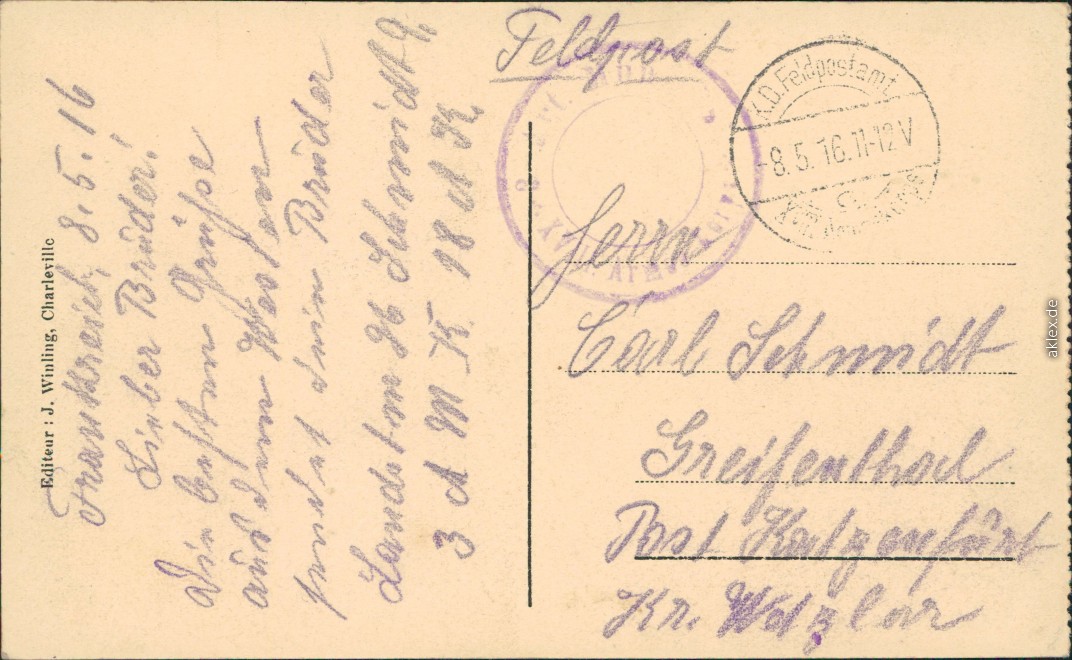 Frankreich, 8.5.16
Lieber Brüder!
Die besten Grüße
aus dem Westen
sendet dein Brüder
Landstm H Schmidt 9,
3 A M K 18 A K.
Editeur : J. Winling, Charleville
Feldpost
K.D. Feldpostamt
-8.5.16.11-12V
c
XVIII. Armeekorps
Herrn
Carl Schmidt
Greifenthal
Post Katzenfurt
Kr. Wetzlar
aklex.de